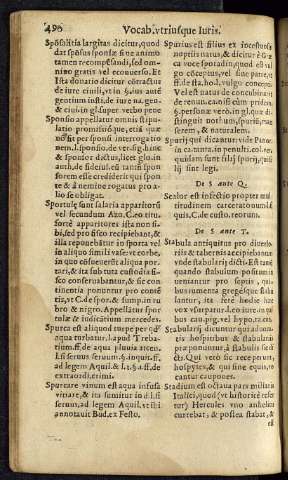 490 Vocab. vtriusque Iuris.
Sponsalitia largitas dicitur, quod
dat sponsus sponsæ sine animo
tamen recompensandi, sed om-
nino gratis vel econuerso. Et
Ista donatio dicitur contractus
de iure ciuili, vt in §. ius autē
gentium inst. de iure na. gen-
& ciui. in gl. super verbo pene
Sponsio appellatur omnis stipu-
latio promissioque, etiā quæ
non sit per sponsi interrogatio
nem. l. sponsio. de ver. sig. hinc
& sponsor dictus, licet glo. in
auth. de fideiuss. eū tantū spon
sorem esse crediderit qui spon-
te & à nemine rogatus pro a-
lio se obligat.
Sportulę sunt salaria apparitorū
vel secundum Azo. C. eo titu.
forte apparitores ista non si-
bi, sed pro fisco recipiebant, &
illa reponebātur in sporta vel
in aliquo simili vase, vt corbe,
in quo consueuerāt aliqua por
tari, & ita sub tuta custodia fi-
sco conseruabantur, & sic con
tinentia ponuntur pro contē
tis, vt C. de spor. & sump. in ru
bro & nigro. Appellātur spor
tulæ & iudicātium mercedes.
Spurca est aliquod turpe per qđ
aqua turbatur. l. apud Treba-
tium. ff. de aqua pluuia arcen.
l. si seruus seruum. §. inquit. ff.
ad legem Aquil. & l. 1. §. 1. ff. de
extraord. crimi.
Spurcare vinum est aqua infusa
vitiare, & ita sumitur in d. l. si
seruus, ad legem Aquil. vt ibi
annotauit Bud. ex Festo.
Spurius est filius ex incestuosis
nuptiis natus, & dicitur à Græ
ca voce sporadin, quod est vul
go cōceptus, vel sine patre, vt
ff. de sta. ho. l. vulgo. & l. & ser-
uorum. & in l. generaliter. §. si.
personæ verò. in gl. quæ di-
stinguit inter spurium, & natu-
serem, & naturalem.
Spurij qui dicantur vide Panor.
in ca. tanta. in penulti. col. ex-
quidam sunt filij spurij, quis
lij sint legi.
De S ante Q.
Scalor est infectio propter mul-
titudinem carceratorum. l. ad
quis. C. de custo. reorum.
De S ante T.
Stabula antiquitus pro diuerso-
riis & tabernis accipiebantur
vnde stabularij dicti. Est tunc
quando stabulum positum in-
uenitur pro septis, qui-
busnumera gregésque stabu-
lantur, ita ferè hodie huc
vox vsurpatur. Leo iure in qui
bus cau. pig. vel hypo. taxet.
Stabularij dicuntur qui aduenis
hospitibus & stabulariis
præponuntur stabulis ser
cti. Qui verò sic receperunt,
hospitēs, & qui sine equis, re-
cantur caupones.
Stadium est octaua pars miliaris
Italici, quod (vt historicè refer
tur) Hercules vno anhelitu
currebat, & postea stabat, &
eò